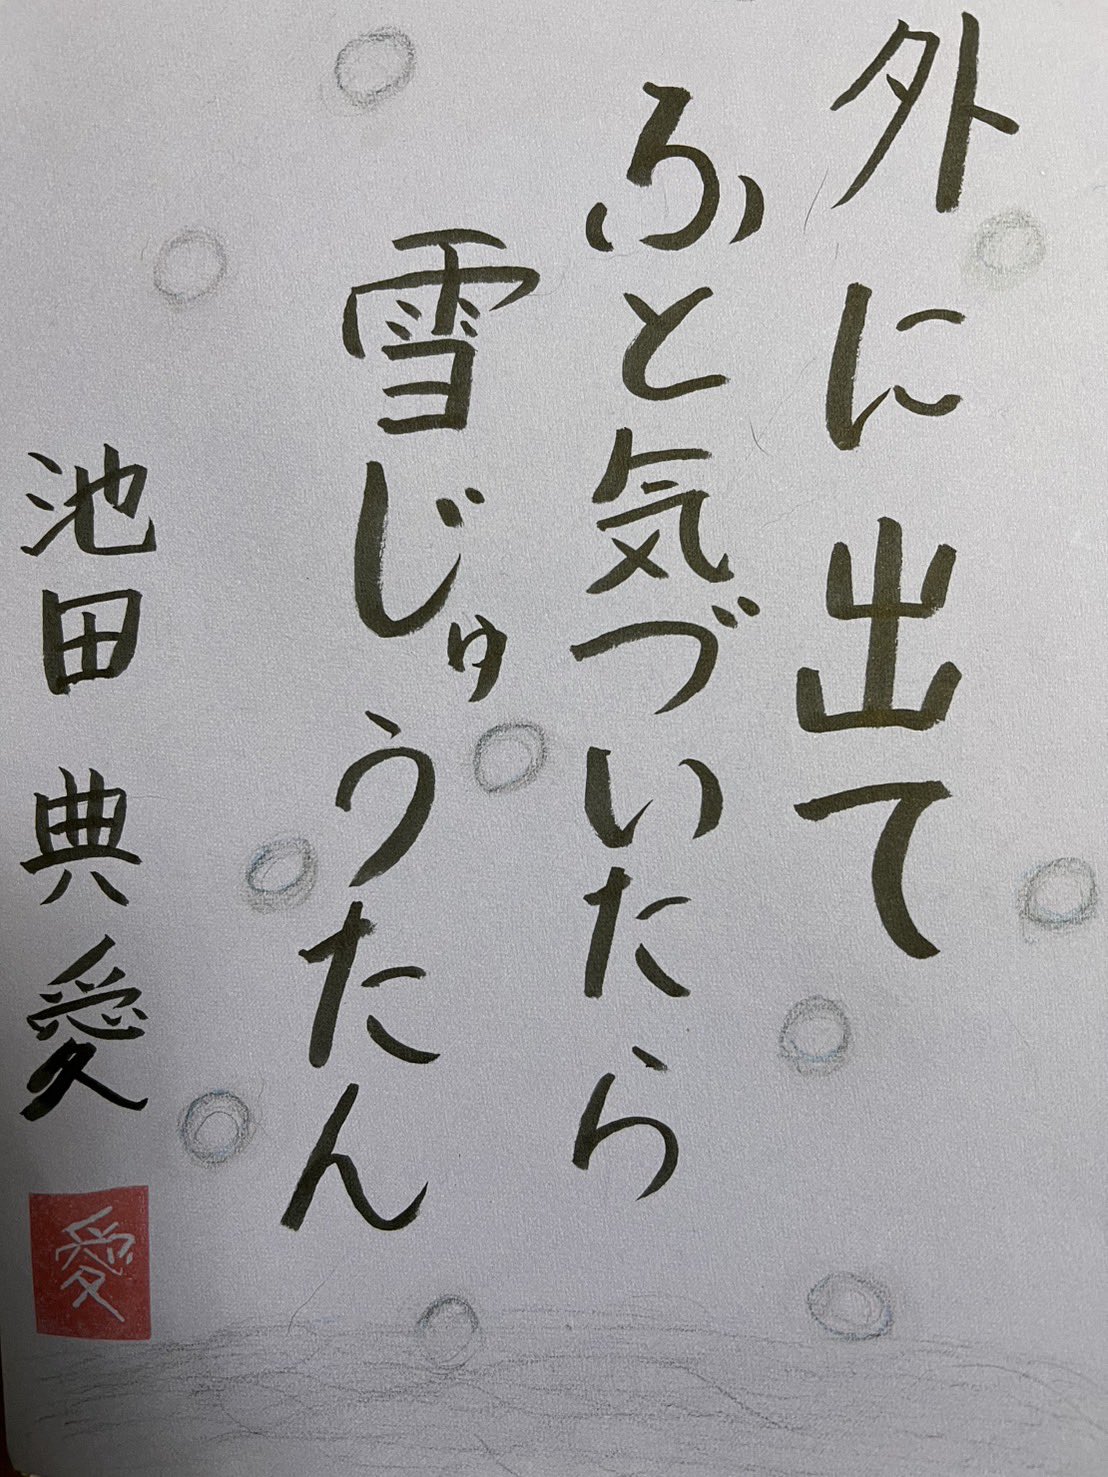 外に出て
ふと気づいたら
雪じゅうたん
池田典愛
愛